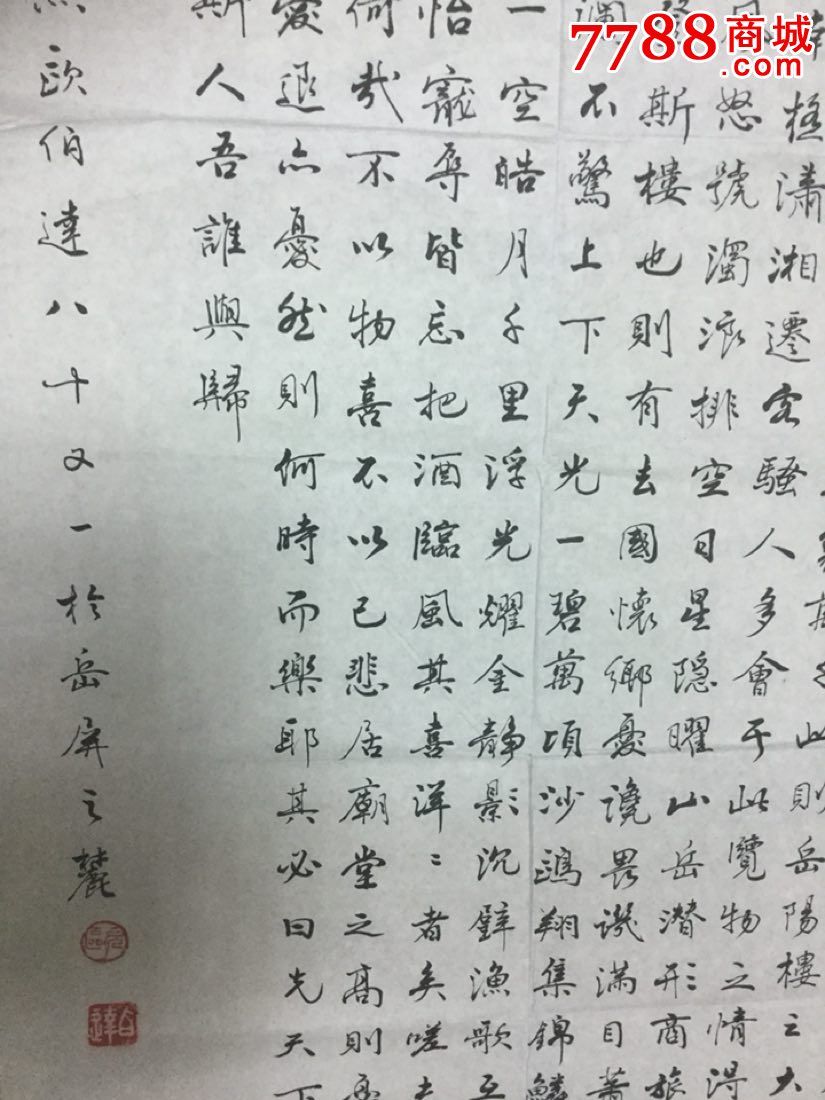 7788商城
南極瀟湘遷客騷人多會于此覽物之情得
風怒號濁浪排空日星隱曜山岳潛形商旅
斯樓也則有去國懷鄉憂讒畏譏滿目蕭
瀾不驚上下天光一碧萬頃沙鷗翔集錦鱗
一空皓月千里浮光耀金静影沉璧漁歌互
怡寵辱皆忘把酒臨風其喜洋〻者矣嗟夫
何哉不以物喜不以己悲居廟堂之高則
憂退亦憂然則何時而樂耶其必曰先天下
斯人吾誰與歸
歐伯達八十又一於岳屏之麓